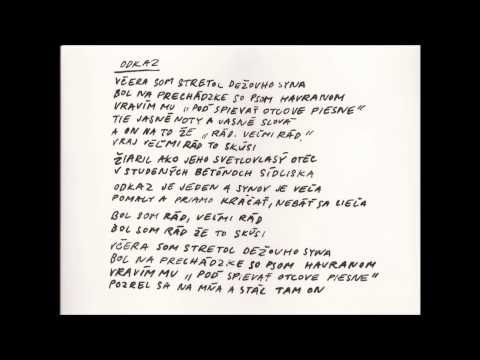 ODKAZ
VČERA SOM STRETOL DEŽOVHO SYNA
BOL NA PRECHÁDZKE SO PSOM HAVRANOM
VRAVÍM MU „POĎ SPIEVAŤ OTCOVE PIESNE"
TIE JASNÉ NOTY A JASNÉ SLOVÁ
A ON NA TO ŽE „RÁD. VEĽMI RÁD."
VRAJ VEĽMI RÁD TO SKÚSI
ŽIARIL AKO JEHO SVETLOVLASÝ OTEC
V STUDENÝCH BETÓNOCH SÍDLISKA
ODKAZ JE JEDEN A SYNOV JE VEĽA
POMALY A PRIAMO KRÁČAŤ, NEBÁŤ SA CIEĽA
BOL SOM RÁD, VEĽMI RÁD
BOL SOM RÁD ŽE TO SKÚSI
VČERA SOM STRETOL DEŽOVHO SYNA
BOL NA PRECHÁDZKE SO PSOM HAVRANOM
VRAVÍM MU „POĎ SPIEVAŤ OTCOVE PIESNE"
POZREL SA NA MŇA A STÁL TAM ON